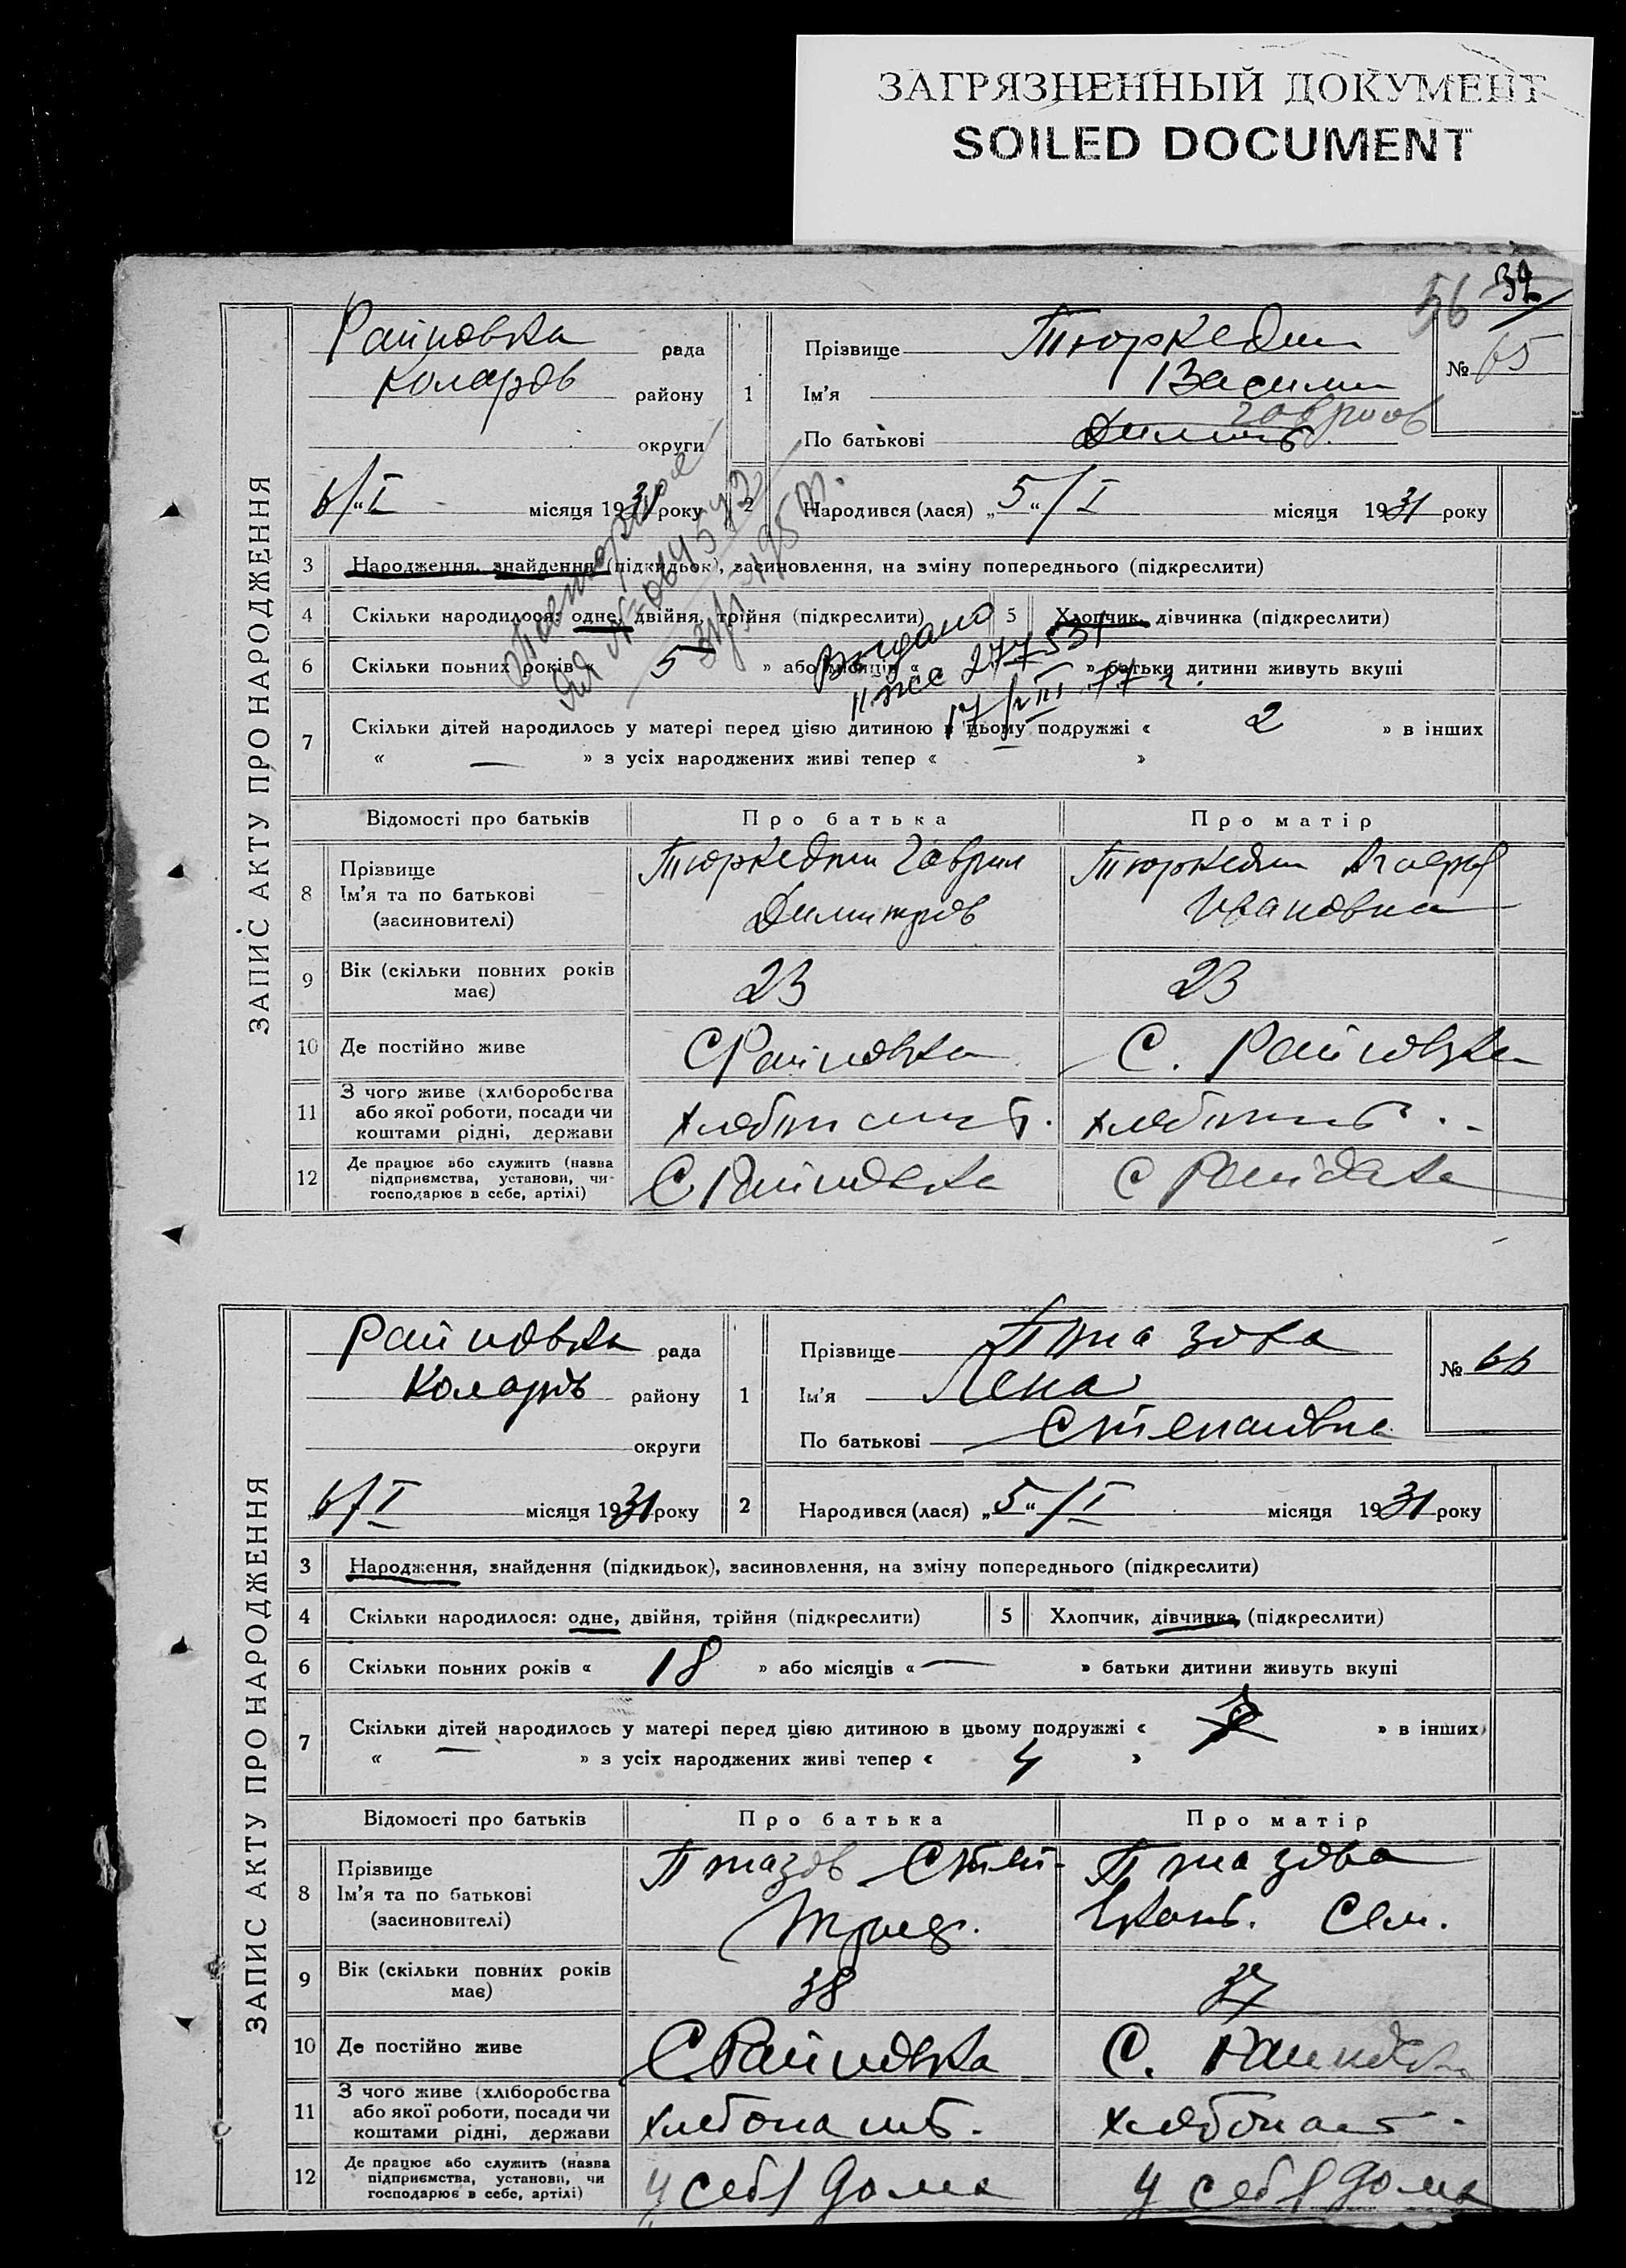 ЗАГРЯЗНЕННЫЙ ДОКУМЕНТ
SOILED DOCUMENT
56 39
ЗАПИС АКТУ ПРО НАРОДЖЕННЯ
Райновка рада
Коларов району
округи
1
Прізвище Тюркеджи
Ім'я Васили
Гаврилов
По батькові Димит
№ 65
6/I місяця 1931 року
2 Народився (лася) „5“/I місяця 1931 року
3 Народження, знайдення (підкидьок), засиновлення, на зміну попереднього (підкреслити)
4 Скільки народилося: одне, двійня, трійня (підкреслити) 5 Хлопчик, дівчинка (підкреслити)
6 Скільки повних років « 5 » або місяців « » батьки дитини живуть вкупі
Повторное
Выдано
277531
7 Скільки дітей народилось у матері перед цією дитиною в цьому подружжі « 2 » в інших
« — » з усіх народжених живі тепер « »
Відомості про батьків Про батька Про матір
8 Прізвище Ім'я та по батькові (засиновителі)
Тюркеджи Гаврил Димитров
Тюркеджи Ивановна
9 Вік (скільки повних років має) 23 23
10 Де постійно живе С Райновка С. Райновка
11 З чого живе (хліборобства або якої роботи, посади чи коштами рідні, держави
12 Де працює або служить (назва підприємства, установи, чи господарює в себе, артілі) С Райновка С Райновка
ЗАПИС АКТУ ПРО НАРОДЖЕННЯ
Райновка рада
Коларов району
округи
1
Прізвище Пиазова
Ім'я Лена
По батькові Степановна
№ 66
„6/I місяця 1931 року
2 Народився (лася) „5“/I місяця 1931 року
3 Народження, знайдення (підкидьок), засиновлення, на зміну попереднього (підкреслити)
4 Скільки народилося: одне, двійня, трійня (підкреслити) 5 Хлопчик, дівчинка (підкреслити)
6 Скільки повних років « 18 » або місяців « — » батьки дитини живуть вкупі
7 Скільки дітей народилось у матері перед цією дитиною в цьому подружжі « » в інших
« — » з усіх народжених живі тепер « 4 »
Відомості про батьків Про батька Про матір
8 Прізвище Ім'я та по батькові (засиновителі)
Пиазов Степ-
Пиазова Сем.
9 Вік (скільки повних років має) 38 37
10 Де постійно живе С. Райновка С. Райновка
11 З чого живе (хліборобства або якої роботи, посади чи коштами рідні, держави хлебопашт. хлебопашт.
12 Де працює або служить (назва підприємства, установи, чи господарює в себе, артілі) у себя дома у себя дома